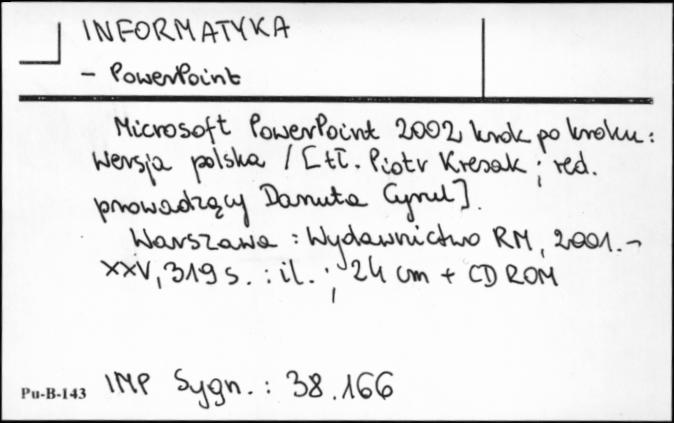 INFORMATYKA
- PowerPoint
Microsoft PowerPoint 2002 krok po kroku :
wersja polska / [tł. Piotr Kresak ; red.
prowadzący Danuta Cyrul].
Warszawa : Wydawnictwo RM, 2001. -
XXV, 319 s. : il. ; 24 cm + CD ROM
Pu-B-143 IMP Sygn. : 38.166